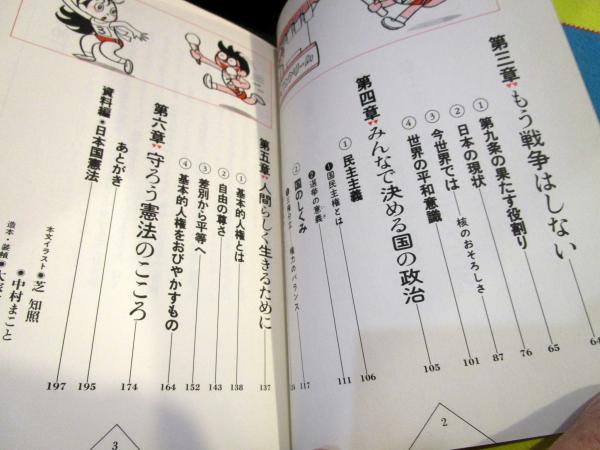 第三章 もう戦争はしない 64
① 第九条の果たす役割り 65
② 日本の現状 76
③ 今世界では 核のおそろしさ 87
④ 世界の平和意識 101
第四章 みんなで決める国の政治 105
① 民主主義 106
❶国民主権とは
❷選挙の意義 111
② 国のしくみ 117
権力のバランス
第五章 人間らしく生きるために 137
① 基本的人権とは 138
② 自由の尊さ 143
③ 差別から平等へ 152
④ 基本的人権をおびやかすもの 164
第六章 守ろう憲法のこころ 174
あとがき 195
資料編●日本国憲法 197
本文イラスト●芝 知照
造本・装幀●中村まこと
2
3